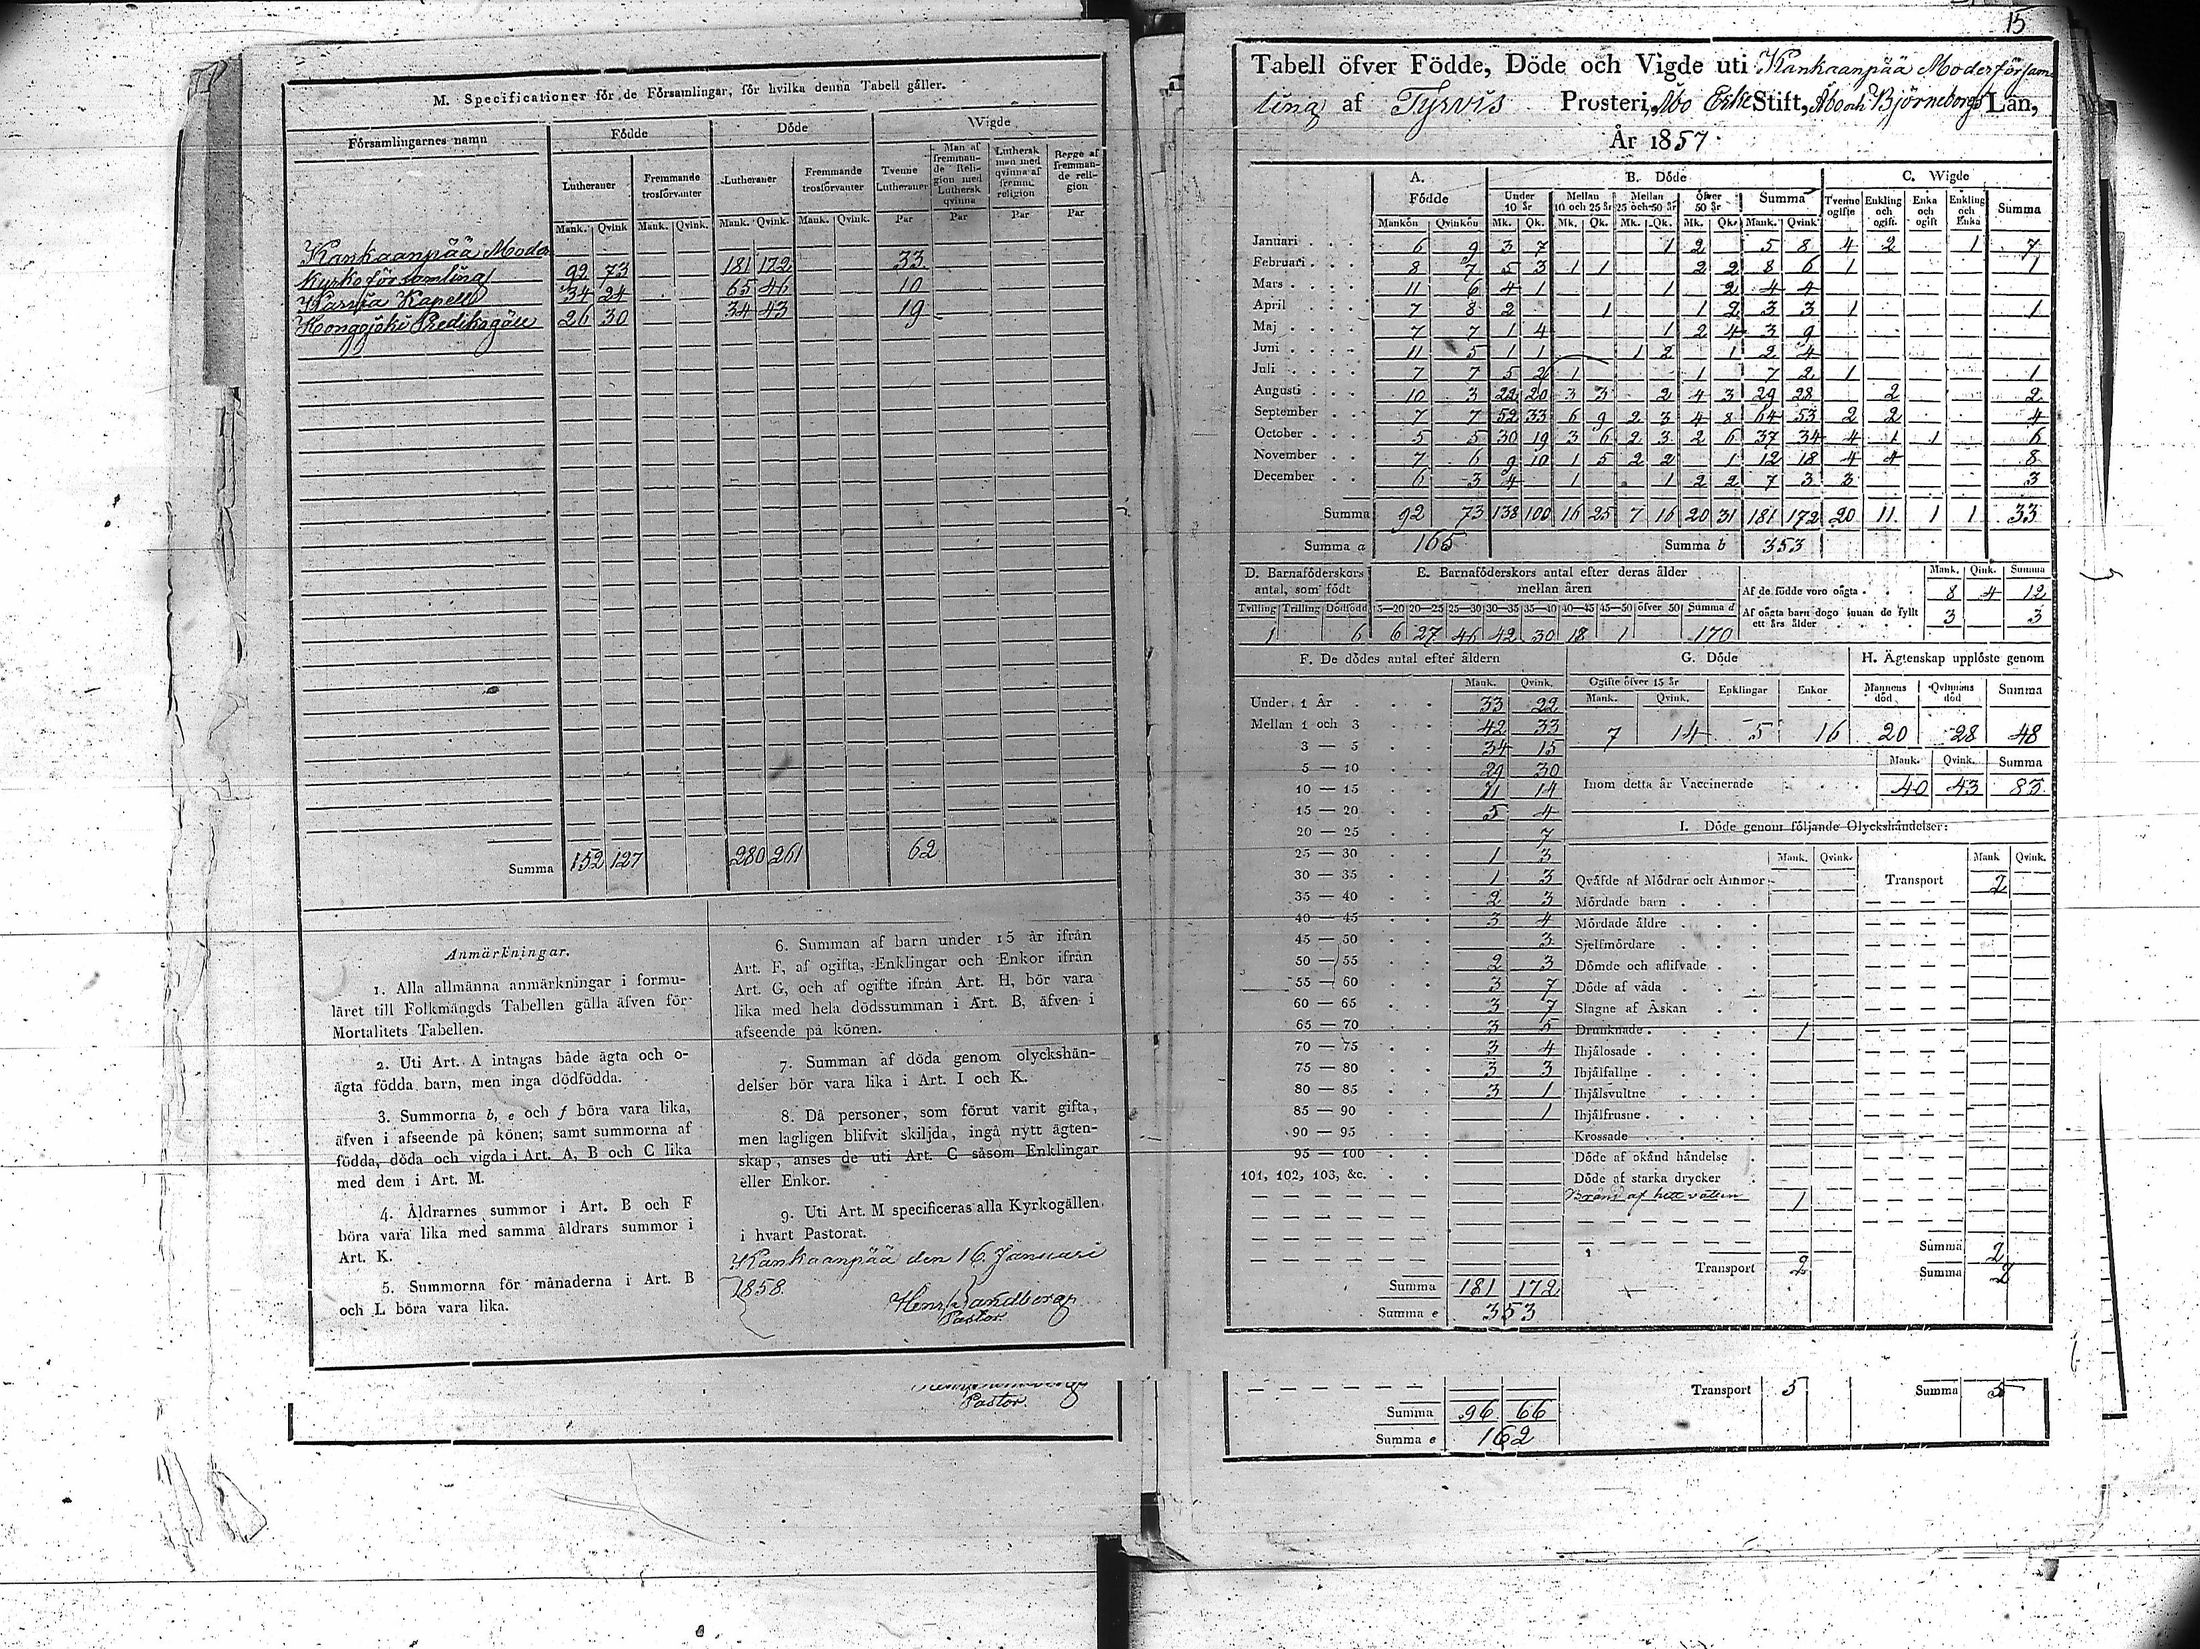 M. Specificationer för de Församlingar, för hvilka denna Tabell gäller.
Församlingarnes namn Födde Döde Wigde
Lutheraner Fremmande trosförvanter Lutheraner Fremmande trosförvanter Tvenne Lutheraner Man af fremmande Religion med Luthersk qvinna Luthersk man med qvinna af fremm. religion Begge af fremmande religion
Mank. Qvink Mank. Qvink. Mank. Qvink. Mank. Qvink. Par Par Par Par
Kankaanpää Moder
Kyrkoförsamling 92 73 181 172 33
Karvia Kapell 34 24 65 46 10
Honggjoki Predikogäll 26 30 34 43 19
Summa 152 127 280 261 62
Anmärkningar.
1. Alla allmänna anmärkningar i formu-
läret till Folkmängds Tabellen gälla äfven för
Mortalitets Tabellen.
2. Uti Art. A intagas både ägta och o-
ägta födda barn, men inga dödfödda.
3. Summorna b, e och f böra vara lika,
äfven i afseende på könen; samt summorna af
födda, döda och vigda i Art. A, B och C lika
med dem i Art. M.
4. Åldrarnes summor i Art. B och F
böra vara lika med samma åldrars summor i
Art. K.
5. Summorna för månaderna i Art. B
och L böra vara lika.
6. Summan af barn under 15 år ifrån
Art. F, af ogifta, Enklingar och Enkor ifrån
Art. G, och af ogifte ifrån Art. H, bör vara
lika med hela dödssumman i Art. B, äfven i
afseende på könen.
7. Summan af döda genom olyckshän-
delser bör vara lika i Art. I och K.
8. Då personer, som förut varit gifta,
men lagligen blifvit skiljda, ingå nytt ägten-
skap, anses de uti Art. C såsom Enklingar
eller Enkor.
9. Uti Art. M specificeras alla Kyrkogällen
i hvart Pastorat.
Kankaanpää den 16 Januari
1858.
Henr Sandberg
Pastor.
Pastor.
15
Tabell öfver Födde, Döde och Vigde uti Kankaanpää Moderförsam
ling af Tyrvis Prosteri, Åbo Erke Stift, Åbo och Björneborgs Län,
År 1857.
A. Födde B. Döde C. Wigde
Under 10 år Mellan 10 och 25 år Mellan 25 och 50 år Öfver 50 år Summa Tvenne ogifte Enkling och ogift. Enka och ogift Enkling och Enka Summa
Mankön Qvinkön Mk. Qk. Mk. Qk. Mk. Qk. Mk. Qk. Mank. Qvink
Januari 6 9 3 7 1 2 5 8 4 2 1 7
Februari 8 7 5 3 1 1 2 2 8 6 1 1
Mars 11 6 4 1 1 2 4 4
April 7 8 2 1 1 2 3 3 1 1
Maj 7 7 1 4 1 2 4 3 9
Juni 11 5 1 1 1 2 1 2 4
Juli 7 7 5 2 1 1 7 2 1 1
Augusti 10 3 22 20 3 3 2 4 3 29 28 2 2
September 7 7 52 33 6 9 2 3 4 8 64 53 2 2 4
October 5 5 30 19 3 6 2 3 2 6 37 34 4 1 1 6
November 7 6 9 10 1 5 2 2 1 12 18 4 4 8
December 6 3 4 1 1 2 2 7 3 3 3
Summa 92 73 138 100 16 25 7 16 20 31 181 172 20 11 1 1 33
Summa a 165 Summa b 353
D. Barnaföderskors antal, som födt E. Barnaföderskors antal efter deras ålder mellan åren
Tvilling Trilling Dödfödd 15—20 20—25 25—30 30—35 35—40 40—45 45—50 öfver 50 Summa d
1 6 6 27 46 42 30 18 1 170
Mank. Qink. Summa
Af de födde voro oägta 8 4 12
Af oägta barn dogo innan de fyllt ett års ålder 3 3
F. De dödes antal efter åldern
Mank. Qvink.
Under 1 År 33 22
Mellan 1 och 3 42 33
3 — 5 34 15
5 — 10 29 30
10 — 15 11 14
15 — 20 5 4
20 — 25 7
25 — 30 1 3
30 — 35 1 3
35 — 40 2 3
40 — 45 3 4
45 — 50 3
50 — 55 2 3
55 — 60 3 7
60 — 65 3 7
65 — 70 3 5
70 — 75 3 4
75 — 80 3 3
80 — 85 3 1
85 — 90 1
90 — 95
95 — 100
101, 102, 103, &c.
Summa 181 172
Summa e 353
G. Döde
Ogifte öfver 15 år Enklingar Enkor
Mank. Qvink.
7 14 5 16
H. Ägtenskap upplöste genom
Mannens död Qvinnans död Summa
20 28 48
Mank. Qvink. Summa
Inom detta år Vaccinerade 40 43 83
I. Döde genom följande Olyckshändelser:
Mank. Qvink. Mank Qvink.
Qväfde af Mödrar och Ammor Transport 2
Mördade barn
Mördade äldre
Sjelfmördare
Dömde och aflifvade
Döde af våda
Slagne af Åskan
Drunknade 1
Ihjälosade
Ihjälfallne
Ihjälsvultne
Ihjälfrusne
Krossade
Döde af okänd händelse
Döde af starka drycker
Bränd af hett vatten 1
Summa 2
Transport 2 Summa 2
Transport 5 Summa 5
Summa 96 66
Summa e 162